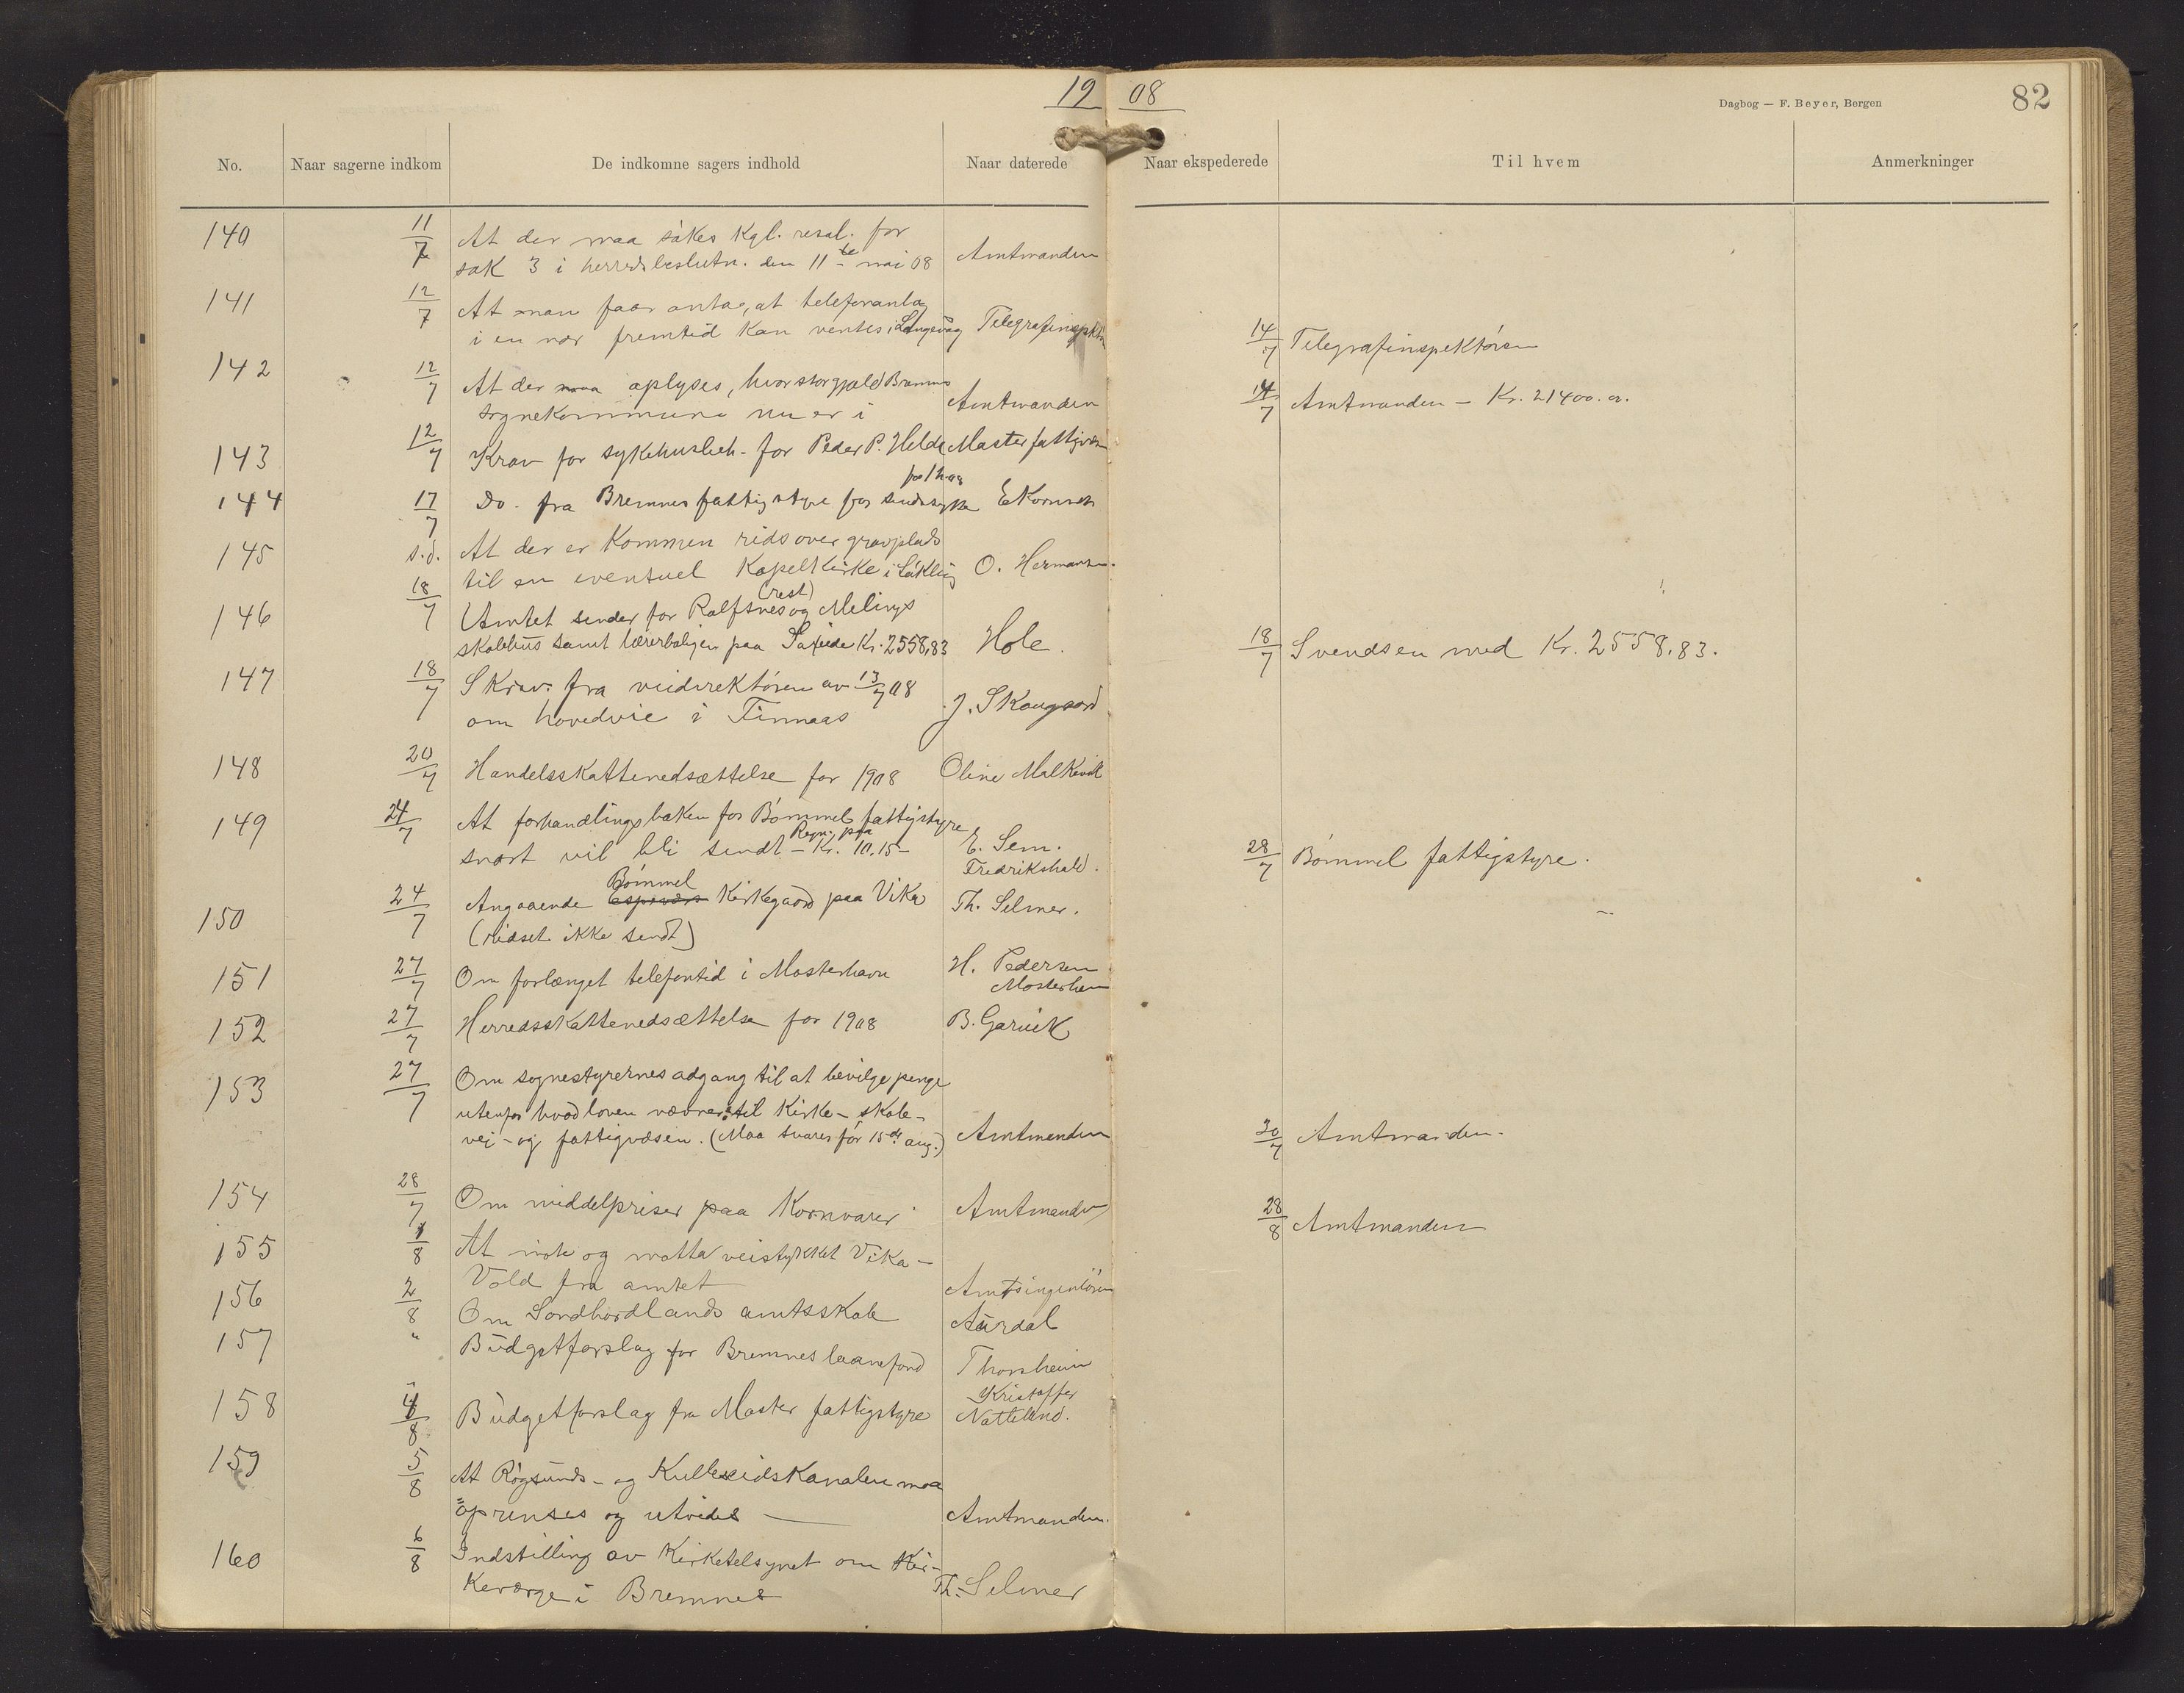 19 08
Dagbog — F. Beyer, Bergen
82
No. Naar sagerne indkom De indkomne sagers indhold Naar daterede Naar ekspederede Til hvem Anmerkninger
140 11/7 At der maa søkes kgl. resol. for
sak 3 i herredsbeslutn. den 11te mai 08 Amtmanden
141 12/7 At man faar antag, at telefonanlæg
i en nær fremtid kan ventes i Langevåg Telegrafinspektør 14/7 Telegrafinspektøren
142 12/7 At der maa oplyses, hvor stor gjæld Bremnes
sognekommune nu er i Amtmanden 14/7 Amtmanden — Kr. 21400.
143 12/7 Krav for sykehusbeh. for Peder P. Helde Moster fattigvæsen
144 17/7 Do. fra Bremnes fattigstyre for sindssyke E Kornnes
145 s.d. At der er kommen rids over gravplads
til en eventuel Kapelkirke i Løkling O. Hermansen.
146 18/7 Amtet sender for Rolfsnes (rest) og Melings
skolehus samt lærerboligen paa Saxeide Kr. 2558,83 Hole. 18/7 Svendsen med Kr. 2558,83.
147 18/7 Skriv. fra veidirektøren av 13/7 08
om hovedveie i Finnaas J. Skougaard
148 20/7 Handelsskattenedsættelse for 1908 Oline Malkenik
149 24/7 At forhandlingsboken for Bømmel fattigstyre
snart vil bli sendt — Regn. paa Kr. 10.15 — E. Sem.
Fredrikshald. 28/7 Bømmel fattigstyre.
150 24/7 Angaaende Bømmel Espevær Kirkegaard paa Vika Th. Selmer.
(ridset ikke sendt)
151 27/7 Om forlænget telefontid i Mosterhavn H. Pedersen
Mosterhavn
152 27/7 Herredsskattenedsættelse for 1908 B. Garvik
153 27/7 Om sognestyrernes adgang til at bevilge penge
utenfor hvad loven nævner: til Kirke-, skole-
vei- og fattigvæsen. (Maa svares før 15de aug.) Amtmanden 30/7 Amtmanden.
154 28/7 Om middelpriser paa Kornvarer Amtmanden 28/8 Amtmanden
155 1/8 At møte og motta veistykket Vika —
Vold fra amtet Amtsingeniøren
156 2/8 Om Søndhordlands amtsskole Aurdal
157 " Budgetforslag for Bremnes laanefond Thorsheim
158 4/8 Budgetforslag fra Moster fattigstyre Kristoffer
Nattland.
159 5/8 At Røgsunds- og Kulleseidskanalen maa
oprenses og utvides — Amtmanden.
160 6/8 Indstilling av Kirketilsynet om Kir-
keværge i Bremnes Th. Selmer